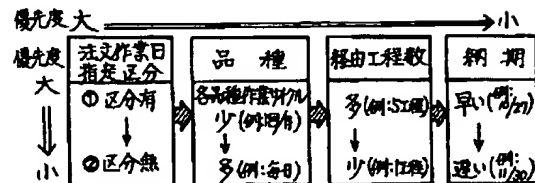 優先度 大 小
優先度
大
小
注文作業日
指定区分
① 区分有
② 区分無
品種
各品種作業サイクル
少(例:1回/月)
多(例:毎日)
経由工程数
多(例:5工程)
少(例:1工程)
納期
早い(例:10/27)
遅い(例:11/30)